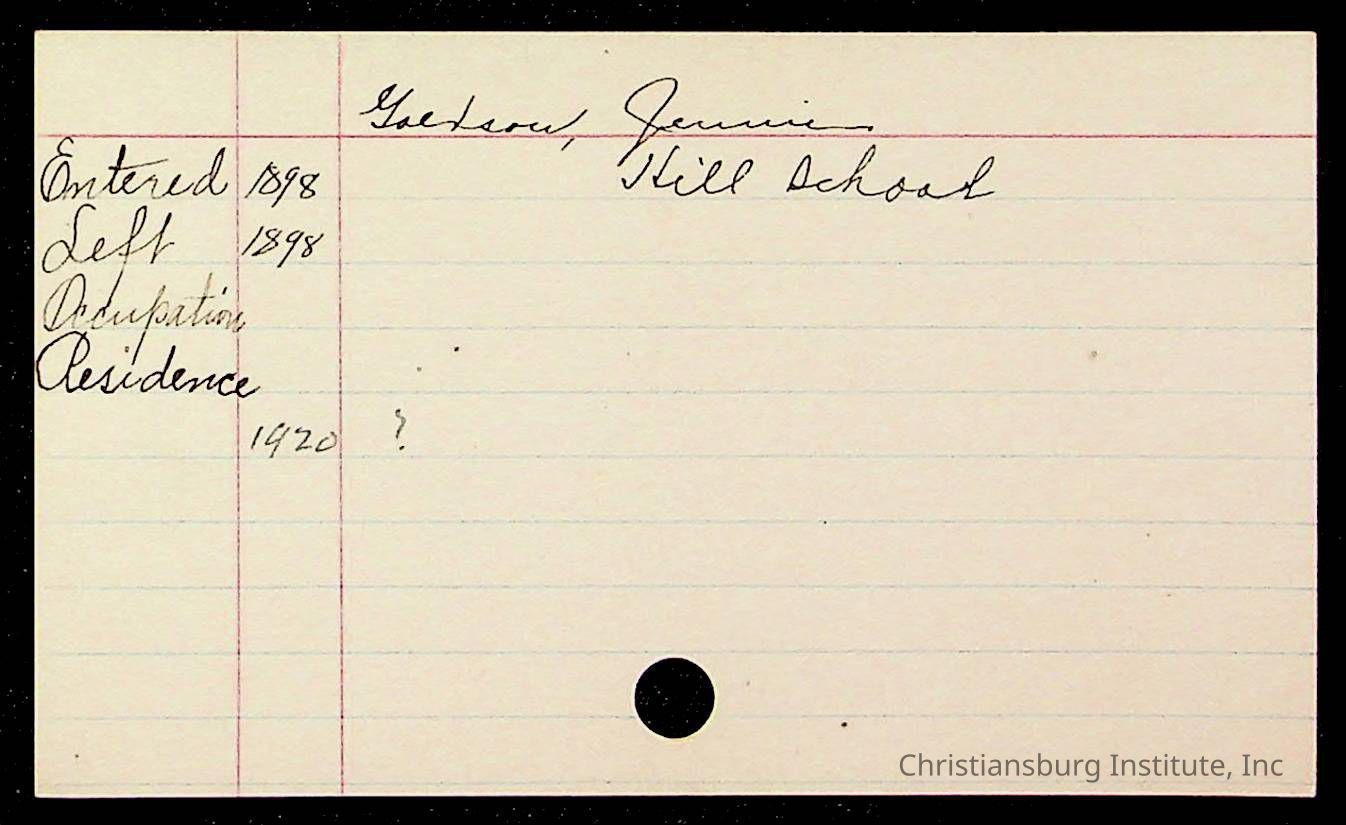 Goldson, Jennie
Entered 1898 Hill School
Left 1898
Occupation
Residence
1920 ?
Christiansburg Institute, Inc